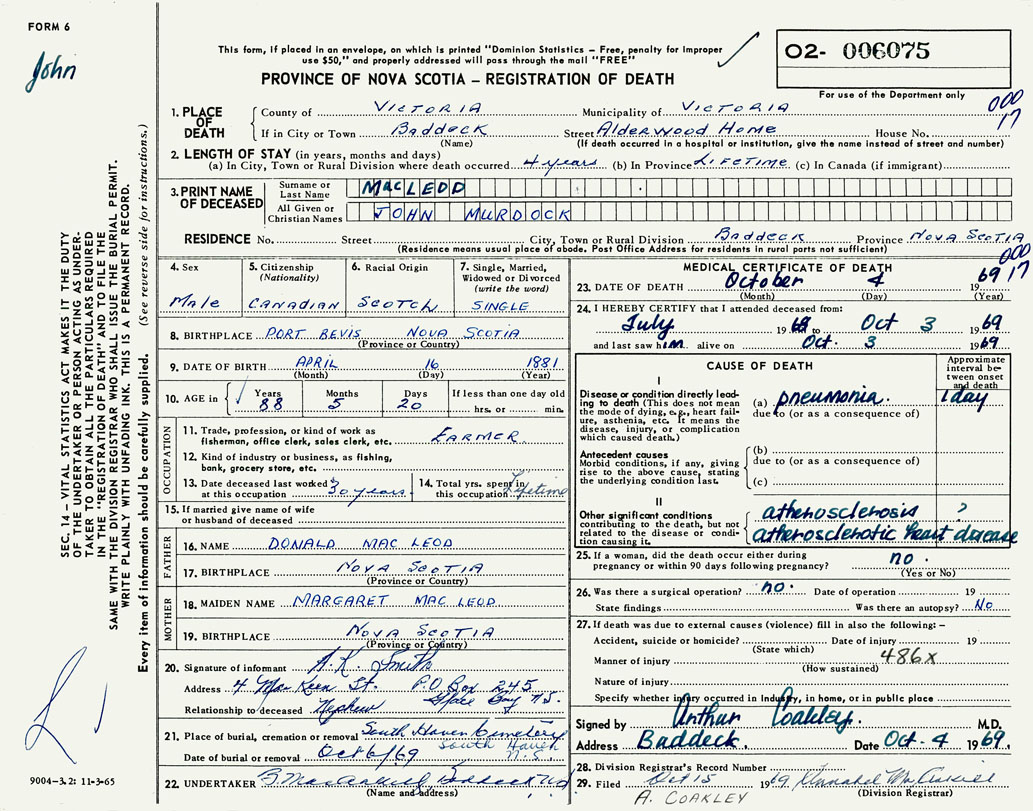 FORM 6
John
This form, if placed in an envelope, on which is printed "Dominion Statistics – Free, penalty for improper
use $50," and properly addressed will pass through the mail "FREE"
PROVINCE OF NOVA SCOTIA – REGISTRATION OF DEATH
O2- 006075
For use of the Department only
000
17
1. PLACE OF DEATH
County of VICTORIA Municipality of VICTORIA
If in City or Town BADDECK Street Alderwood Home House No.
(Name) (If death occurred in a hospital or institution, give the name instead of street and number)
2. LENGTH OF STAY (in years, months and days)
(a) In City, Town or Rural Division where death occurred 4 years (b) In Province LIFETIME (c) In Canada (if immigrant)
3. PRINT NAME OF DECEASED
Surname or Last Name MACLEOD
All Given or Christian Names JOHN MURDOCK
RESIDENCE No. Street City, Town or Rural Division BADDECK Province NOVA SCOTIA
(Residence means usual place of abode. Post Office Address for residents in rural parts not sufficient)
000
17
4. Sex
Male
5. Citizenship
(Nationality)
CANADIAN
6. Racial Origin
SCOTCH
7. Single, Married,
Widowed or Divorced
(write the word)
SINGLE
8. BIRTHPLACE PORT BEVIS NOVA SCOTIA
(Province or Country)
9. DATE OF BIRTH APRIL 16 1881
(Month) (Day) (Year)
10. AGE in
Years Months Days If less than one day old
88 5 20 hrs. or min.
OCCUPATION
11. Trade, profession, or kind of work as
fisherman, office clerk, sales clerk, etc. FARMER
12. Kind of industry or business, as fishing,
bank, grocery store, etc.
13. Date deceased last worked
at this occupation 30 years
14. Total yrs. spent in
this occupation Lifetime
15. If married give name of wife
or husband of deceased
FATHER
16. NAME DONALD MAC LEOD
17. BIRTHPLACE NOVA SCOTIA
(Province or Country)
MOTHER
18. MAIDEN NAME MARGARET MAC LEOD
19. BIRTHPLACE NOVA SCOTIA
(Province or Country)
20. Signature of informant A. K. Smith
Address 4 St. P.O Box 245
Relationship to deceased Nephew Glace Bay N.S.
21. Place of burial, cremation or removal South Haven Cemetery
South Haven
N.S.
Date of burial or removal Oct 6/69
22. UNDERTAKER Baddeck N.S
(Name and address)
MEDICAL CERTIFICATE OF DEATH
23. DATE OF DEATH October 4 1969
(Month) (Day) (Year)
24. I HEREBY CERTIFY that I attended deceased from:
July 1969 to Oct 3 1969
and last saw him alive on Oct. 3 1969
CAUSE OF DEATH
Approximate
interval be-
tween onset
and death
I
Disease or condition directly lead-
ing to death (This does not mean
the mode of dying, e.g., heart fail-
ure, asthenia, etc. It means the
disease, injury, or complication
which caused death.)
(a) pneumonia. 1 day
due to (or as a consequence of)
Antecedent causes
Morbid conditions, if any, giving
rise to the above cause, stating
the underlying condition last.
(b)
due to (or as a consequence of)
(c)
II
Other significant conditions
contributing to the death, but not
related to the disease or condi-
tion causing it.
atherosclerosis ?
atherosclerotic heart disease
25. If a woman, did the death occur either during
pregnancy or within 90 days following pregnancy? no.
(Yes or No)
26. Was there a surgical operation? no. Date of operation 19
State findings Was there an autopsy? No
27. If death was due to external causes (violence) fill in also the following: –
Accident, suicide or homicide? Date of injury 19
(State which)
Manner of injury 486X
(How sustained)
Nature of injury
Specify whether injury occurred in Industry, in home, or in public place
Signed by Arthur Coakley. M.D.
Address Baddeck. Date Oct-4 1969.
28. Division Registrar's Record Number
29. Filed Oct 15 1969
(Division Registrar)
A. COAKLEY
SEC. 14 – VITAL STATISTICS ACT MAKES IT THE DUTY
OF THE UNDERTAKER OR PERSON ACTING AS UNDER-
TAKER TO OBTAIN ALL THE PARTICULARS REQUIRED
IN THE "REGISTRATION OF DEATH" AND TO FILE THE
SAME WITH THE DIVISION REGISTRAR WHO SHALL ISSUE THE BURIAL PERMIT.
WRITE PLAINLY WITH UNFADING INK. THIS IS A PERMANENT RECORD.
Every item of information should be carefully supplied. (See reverse side for instructions.)
9004-3.2: 11-3-65